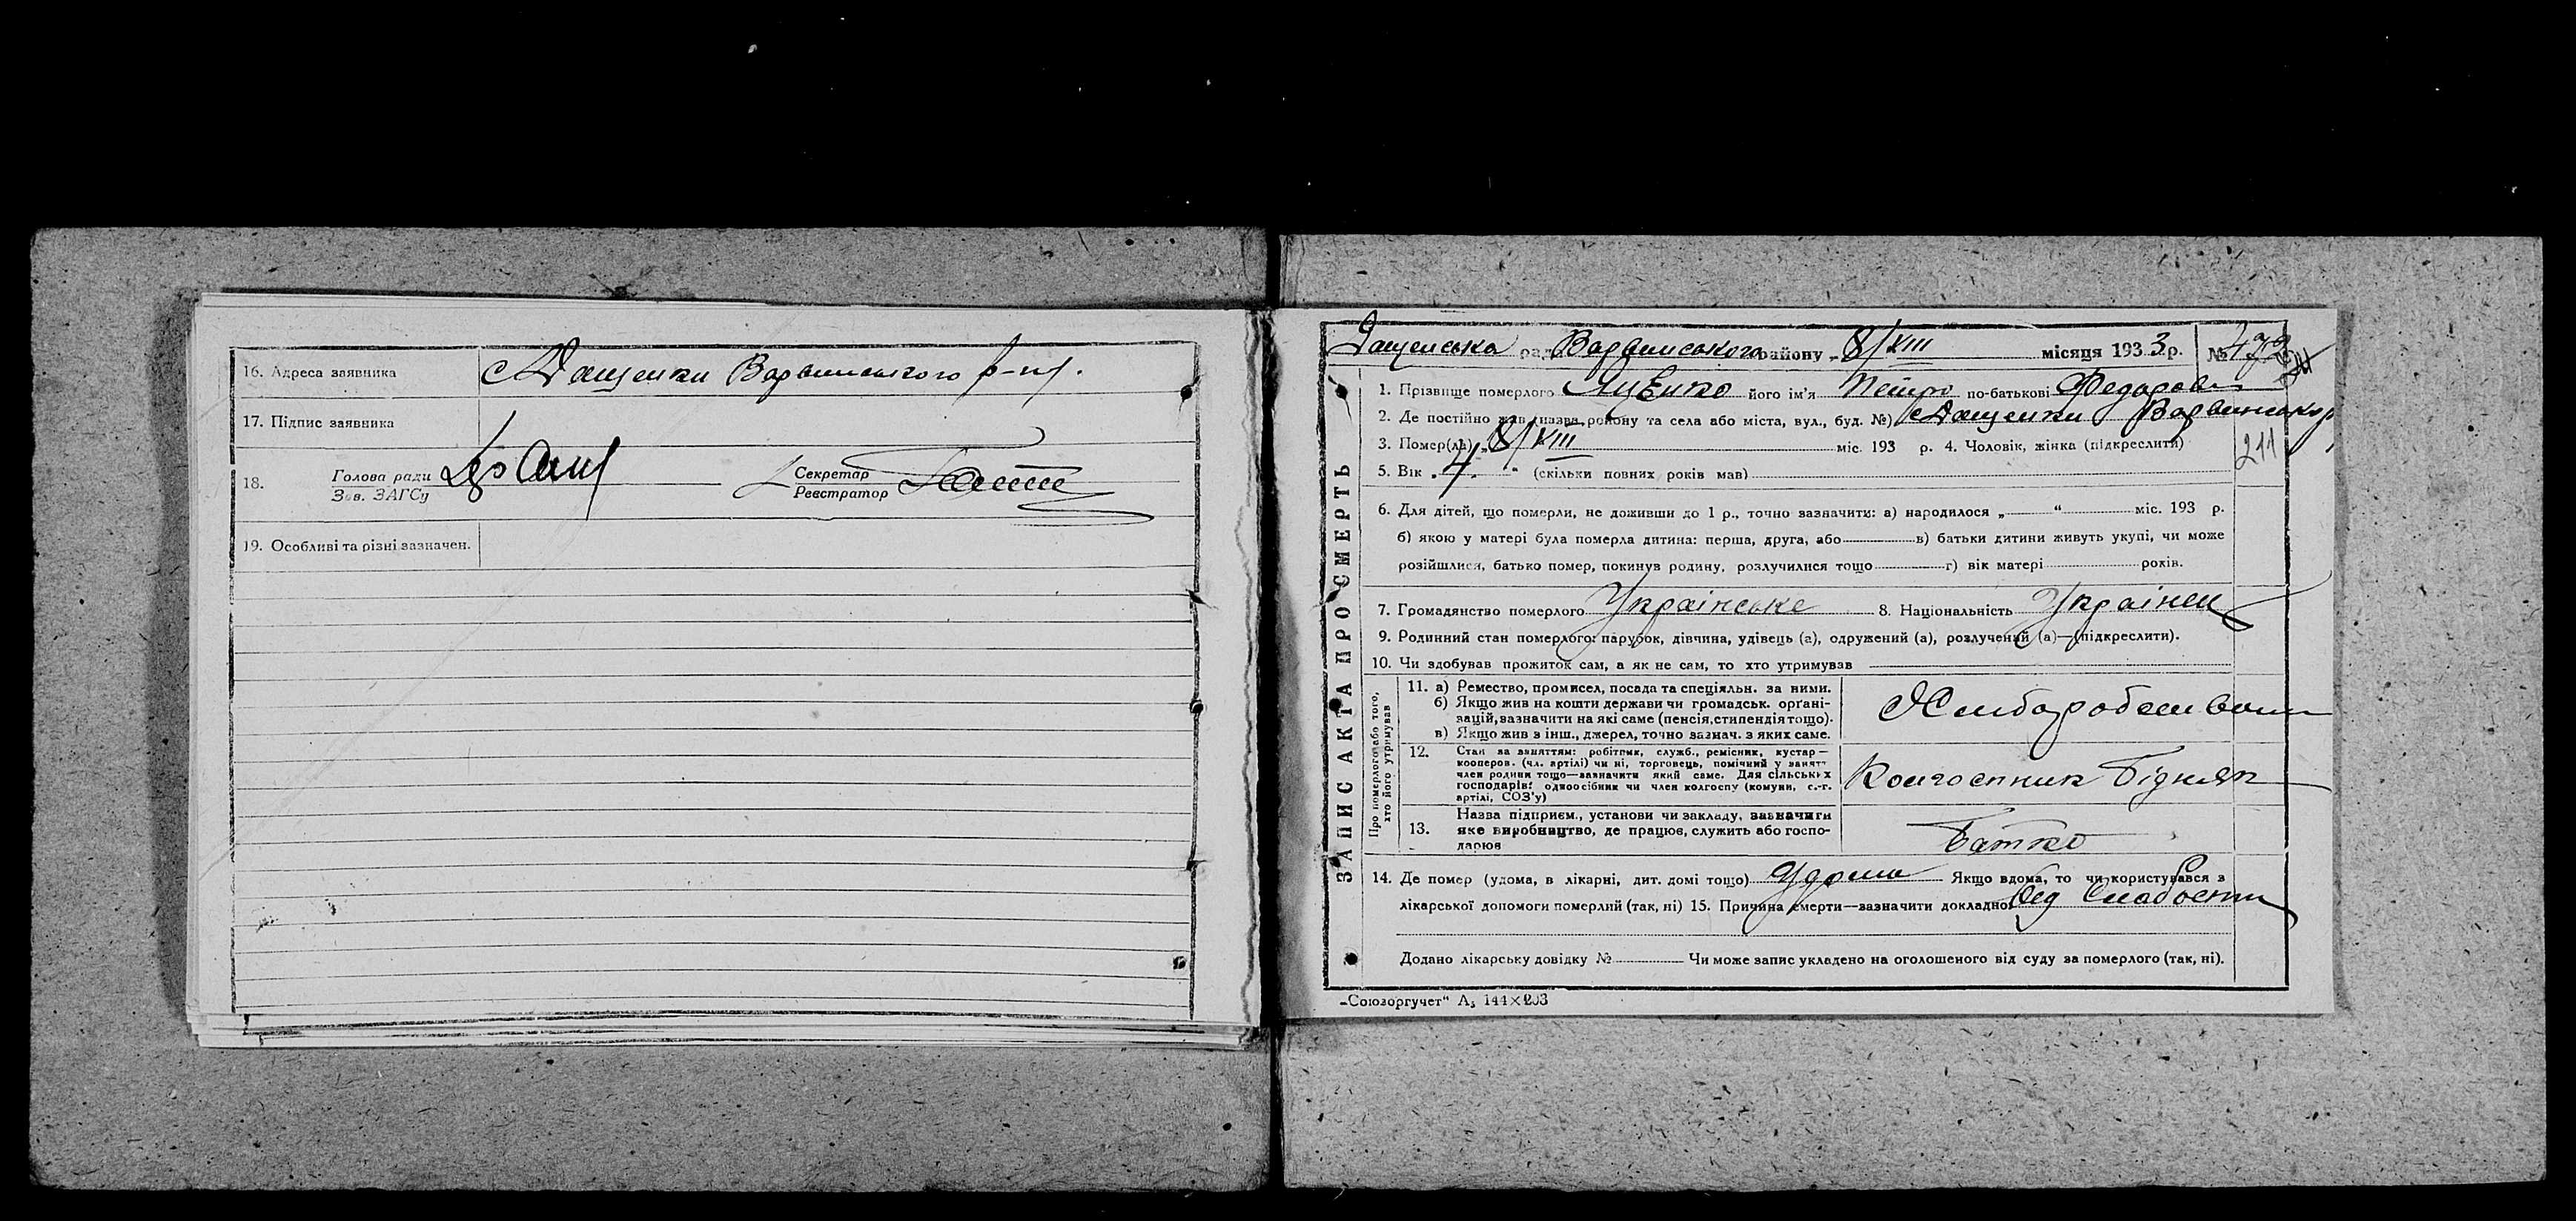 16. Адреса заявника с Дащенки Варвинського р-ну.
17. Підпис заявника
18. Голова ради
Зав. ЗАГСу
Секретар
Реєстратор
19. Особливі та різні зазначен.
ЗАПИС АКТА ПРО СМЕРТЬ
Дащенська рад Варвинського району „ 8/VIII місяця 1933 р. №
1. Прізвище померлого Яценко його ім'я Петро по-батькові Федорович
2. Де постійно жив (назва району та села або міста, вул., буд. №) с Дащенки Варвинськ р
3. Помер(ла) „ 8/VIII міс. 193 р. 4. Чоловік, жінка (підкреслити)
211
5. Вік „ 4 “ (скільки повних років мав)
6. Для дітей, що померли, не доживши до 1 р., точно зазначити: а) народилося „ “ міс. 193 р.
б) якою у матері була померла дитина: перша, друга, або в) батьки дитини живуть укупі, чи може
розійшлися, батько помер, покинув родину, розлучилися тощо г) вік матері років.
7. Громадянство померлого Українське 8. Національність Українец
9. Родинний стан померлого: парубок, дівчина, удівець (а), одружений (а), розлучений (а)—(підкреслити).
10. Чи здобував прожиток сам, а як не сам, то хто утримував
Про померлого або того, хто його утримував
11. а) Ремество, промисел, посада та спеціяльн. за ними.
б) Якщо жив на кошти держави чи громадськ. органі-
зацій, зазначити на які саме (пенсія, стипендія тощо).
в) Якщо жив з інш., джерел, точно зазнач. з яких саме.
12. Стан за заняттям: робітник, служб., ремісник, кустар—
кооперов. (чл. артілі) чи ні, торговець, помічний у занят-
член родини тощо—зазначити який саме. Для сільських
господарів: одноосібник чи член колгоспу (комуни, с.-г.
артілі, СОЗ'у)
Колгоспник Бідняк
13. Назва підприєм., установи чи закладу, зазначити
яке виробництво, де працює, служить або госпо-
дарює
Батько
14. Де помер (удома, в лікарні, дит. домі тощо) Удома Якщо вдома, то чи користувався з
лікарської допомоги померлий (так, ні) 15. Причина смерти—зазначити докладно Од Слабости
Додано лікарську довідку № Чи може запис укладено на оголошеного від суду за померлого (так, ні).
„Союзоргучет“ А₅ 144×203